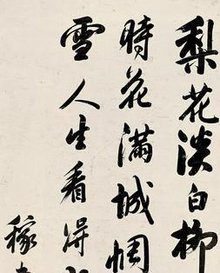 梨花淡白柳
時花滿城惆
雪人生看得
稼